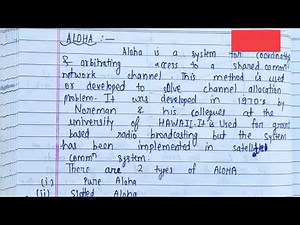 ALOHA :-
Aloha is a system for coordinating
& orbitrating access to a shared commn
network channel. This method is used
or developed to solve channel allocation
problem. It was developed in 1970's by
Noreman & his collegues at the
university of HAWAII. It is used for ground
based radio broadcasting but the system
has been implemented in satellites
commn system.
There are 2 types of ALOHA
(i) Pure Aloha
(ii) Slotted Aloha